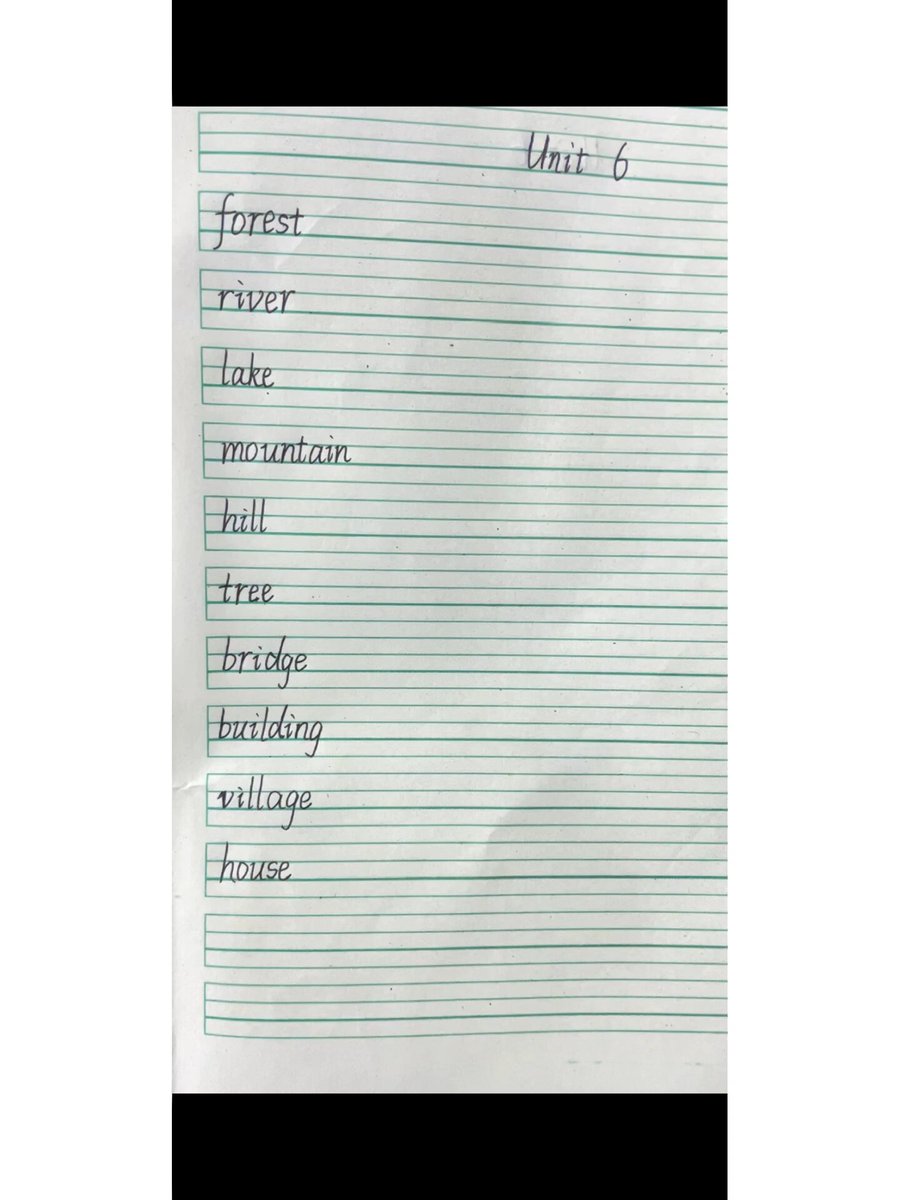 Unit 6
forest
river
lake
mountain
hill
tree
bridge
building
village
house